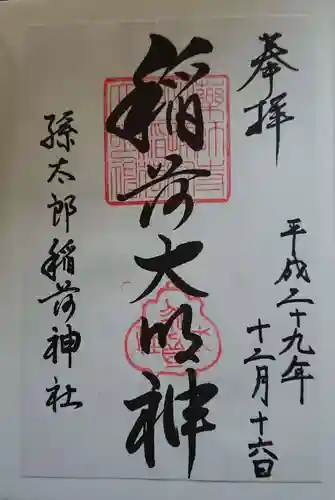 奉拝
平成二十九年
十二月十六日
稲荷大明神
孫太郎稲荷神社